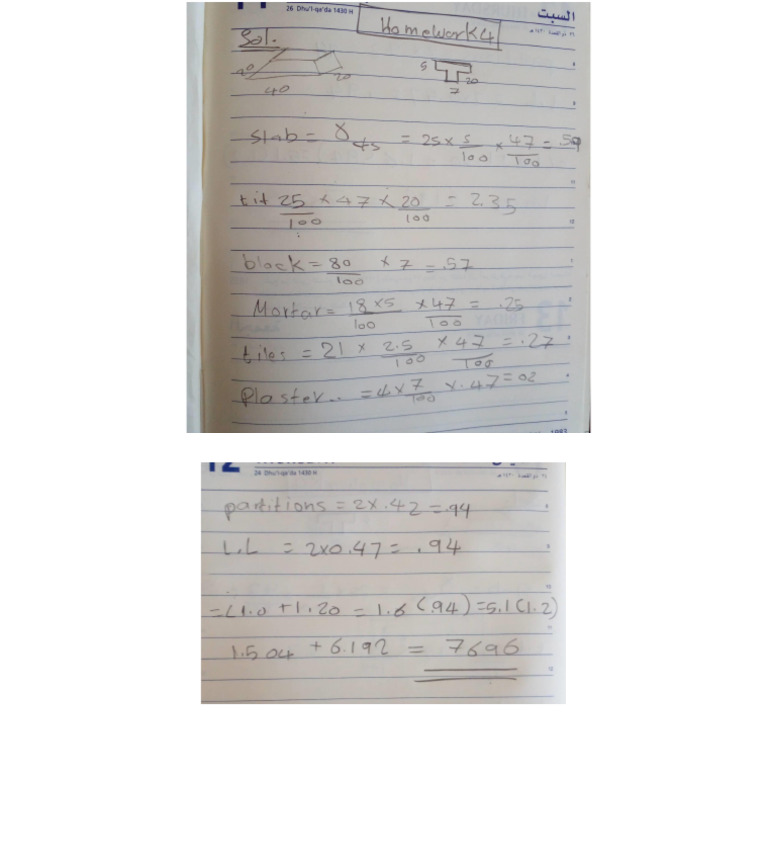 26 Dhu'l-qa'da 1430 H
السبت
Homework4
Sol.
5
20
20
20
40
7
slab = γ ts = 25 × 5/100 × 47/100 = .59
25/100 × 47 × 20/100 = 2.35
block = 80/100 × 7 = .57
Mortar = 18×5/100 × 47/100 = .25
tiles = 21 × 2.5/100 × 47/100 = .27
Plaster.. = 4 × 7/100 × .47 = 02
12
24 Dhu'l-qa'da 1430 H
partitions = 2×.42 = .94
L.L = 2×0.47 = .94
= L1.0 + 1.20 = 1.6 (.94) = 5.1 (1.2)
1.504 + 6.192 = 7696